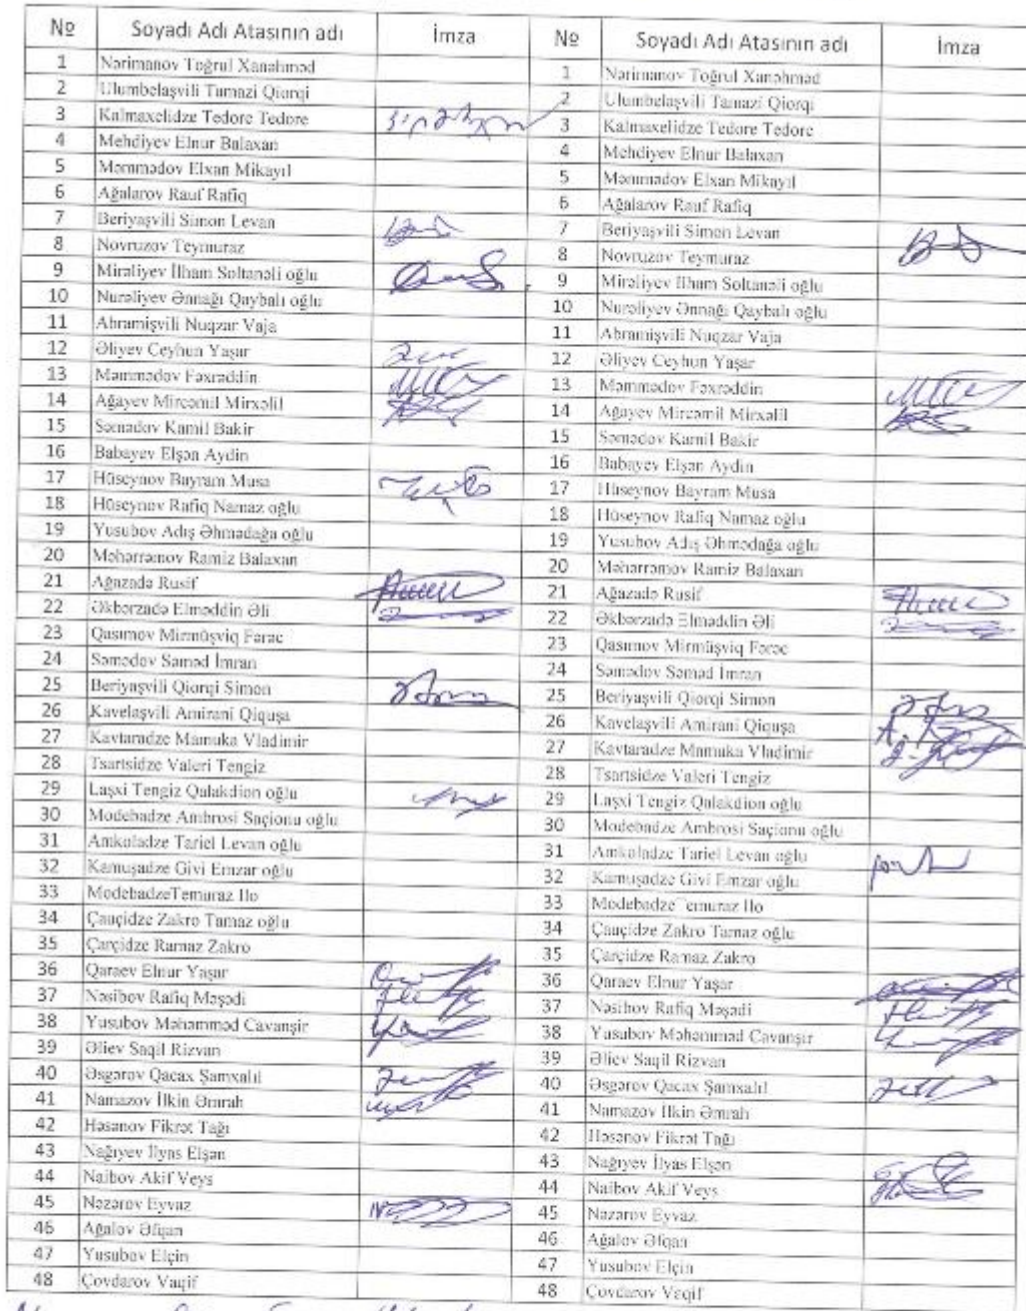 № Soyadı Adı Atasının adı İmza
1 Nərimanov Toğrul Xanəhməd
2 Ulumbelaşvili Tamazi Qiorqi
3 Kalmaxelidze Tedore Tedore
4 Mehdiyev Elnur Balaxan
5 Məmmədov Elxan Mikayıl
6 Ağalarov Rauf Rafiq
7 Beriyaşvili Simon Levan
8 Novruzov Teymuraz
9 Mirəliyev İlham Soltanəli oğlu
10 Nurəliyev Ənnağı Qaybalı oğlu
11 Abramişvili Nuqzar Vaja
12 Əliyev Ceyhun Yaşar
13 Məmmədov Fəxrəddin
14 Ağayev Mircəmil Mirxəlil
15 Səmədov Kamil Bakir
16 Babayev Elşən Aydin
17 Hüseynov Bayram Musa
18 Hüseynov Rafiq Namaz oğlu
19 Yusubov Adış Əhmədağa oğlu
20 Məhərrəmov Ramiz Balaxan
21 Ağazadə Rusif
22 Əkbərzadə Elməddin Əli
23 Qasımov Mirmüşviq Fərəc
24 Səmədov Səməd İmran
25 Beriyaşvili Qiorqi Simon
26 Kavelaşvili Amirani Qiquşa
27 Kavtaradze Mamuka Vladimir
28 Tsartsidze Valeri Tengiz
29 Laşxi Tengiz Qalakdion oğlu
30 Modebadze Ambrosi Saçionu oğlu
31 Amkoladze Tariel Levan oğlu
32 Kamuşadze Givi Emzar oğlu
33 ModebadzeTemuraz Ilo
34 Çauçidze Zakro Tamaz oğlu
35 Çarçidze Ramaz Zakro
36 Qaraev Elnur Yaşar
37 Nəsibov Rafiq Məşədi
38 Yusubov Məhəmməd Cavanşir
39 Əliev Saqil Rizvan
40 Əsgərov Qacax Şamxalıl
41 Namazov İlkin Əmrah
42 Həsənov Fikrət Tağı
43 Nağıyev İlyas Elşən
44 Naibov Akif Veys
45 Nəzərov Eyvaz
46 Ağalov Əfqan
47 Yusubov Elçin
48 Çovdarov Vaqif
№ Soyadı Adı Atasının adı İmza
1 Nərimanov Toğrul Xanəhməd
2 Ulumbelaşvili Tamazi Qiorqi
3 Kalmaxelidze Tedore Tedore
4 Mehdiyev Elnur Balaxan
5 Məmmədov Elxan Mikayıl
6 Ağalarov Rauf Rafiq
7 Beriyaşvili Simon Levan
8 Novruzov Teymuraz
9 Mirəliyev İlham Soltanəli oğlu
10 Nurəliyev Ənnağı Qaybalı oğlu
11 Abramişvili Nuqzar Vaja
12 Əliyev Ceyhun Yaşar
13 Məmmədov Fəxrəddin
14 Ağayev Mircəmil Mirxəlil
15 Səmədov Kamil Bakir
16 Babayev Elşən Aydin
17 Hüseynov Bayram Musa
18 Hüseynov Rafiq Namaz oğlu
19 Yusubov Adış Əhmədağa oğlu
20 Məhərrəmov Ramiz Balaxan
21 Ağazadə Rusif
22 Əkbərzadə Elməddin Əli
23 Qasımov Mirmüşviq Fərəc
24 Səmədov Səməd İmran
25 Beriyaşvili Qiorqi Simon
26 Kavelaşvili Amirani Qiquşa
27 Kavtaradze Mamuka Vladimir
28 Tsartsidze Valeri Tengiz
29 Laşxi Tengiz Qalakdion oğlu
30 Modebadze Ambrosi Saçionu oğlu
31 Amkoladze Tariel Levan oğlu
32 Kamuşadze Givi Emzar oğlu
33 Modebadze Temuraz Ilo
34 Çauçidze Zakro Tamaz oğlu
35 Çarçidze Ramaz Zakro
36 Qaraev Elnur Yaşar
37 Nəsibov Rafiq Məşədi
38 Yusubov Məhəmməd Cavanşir
39 Əliev Saqil Rizvan
40 Əsgərov Qacax Şamxalıl
41 Namazov İlkin Əmrah
42 Həsənov Fikrət Tağı
43 Nağıyev İlyas Elşən
44 Naibov Akif Veys
45 Nəzərov Eyvaz
46 Ağalov Əfqan
47 Yusubov Elçin
48 Çovdarov Vaqif